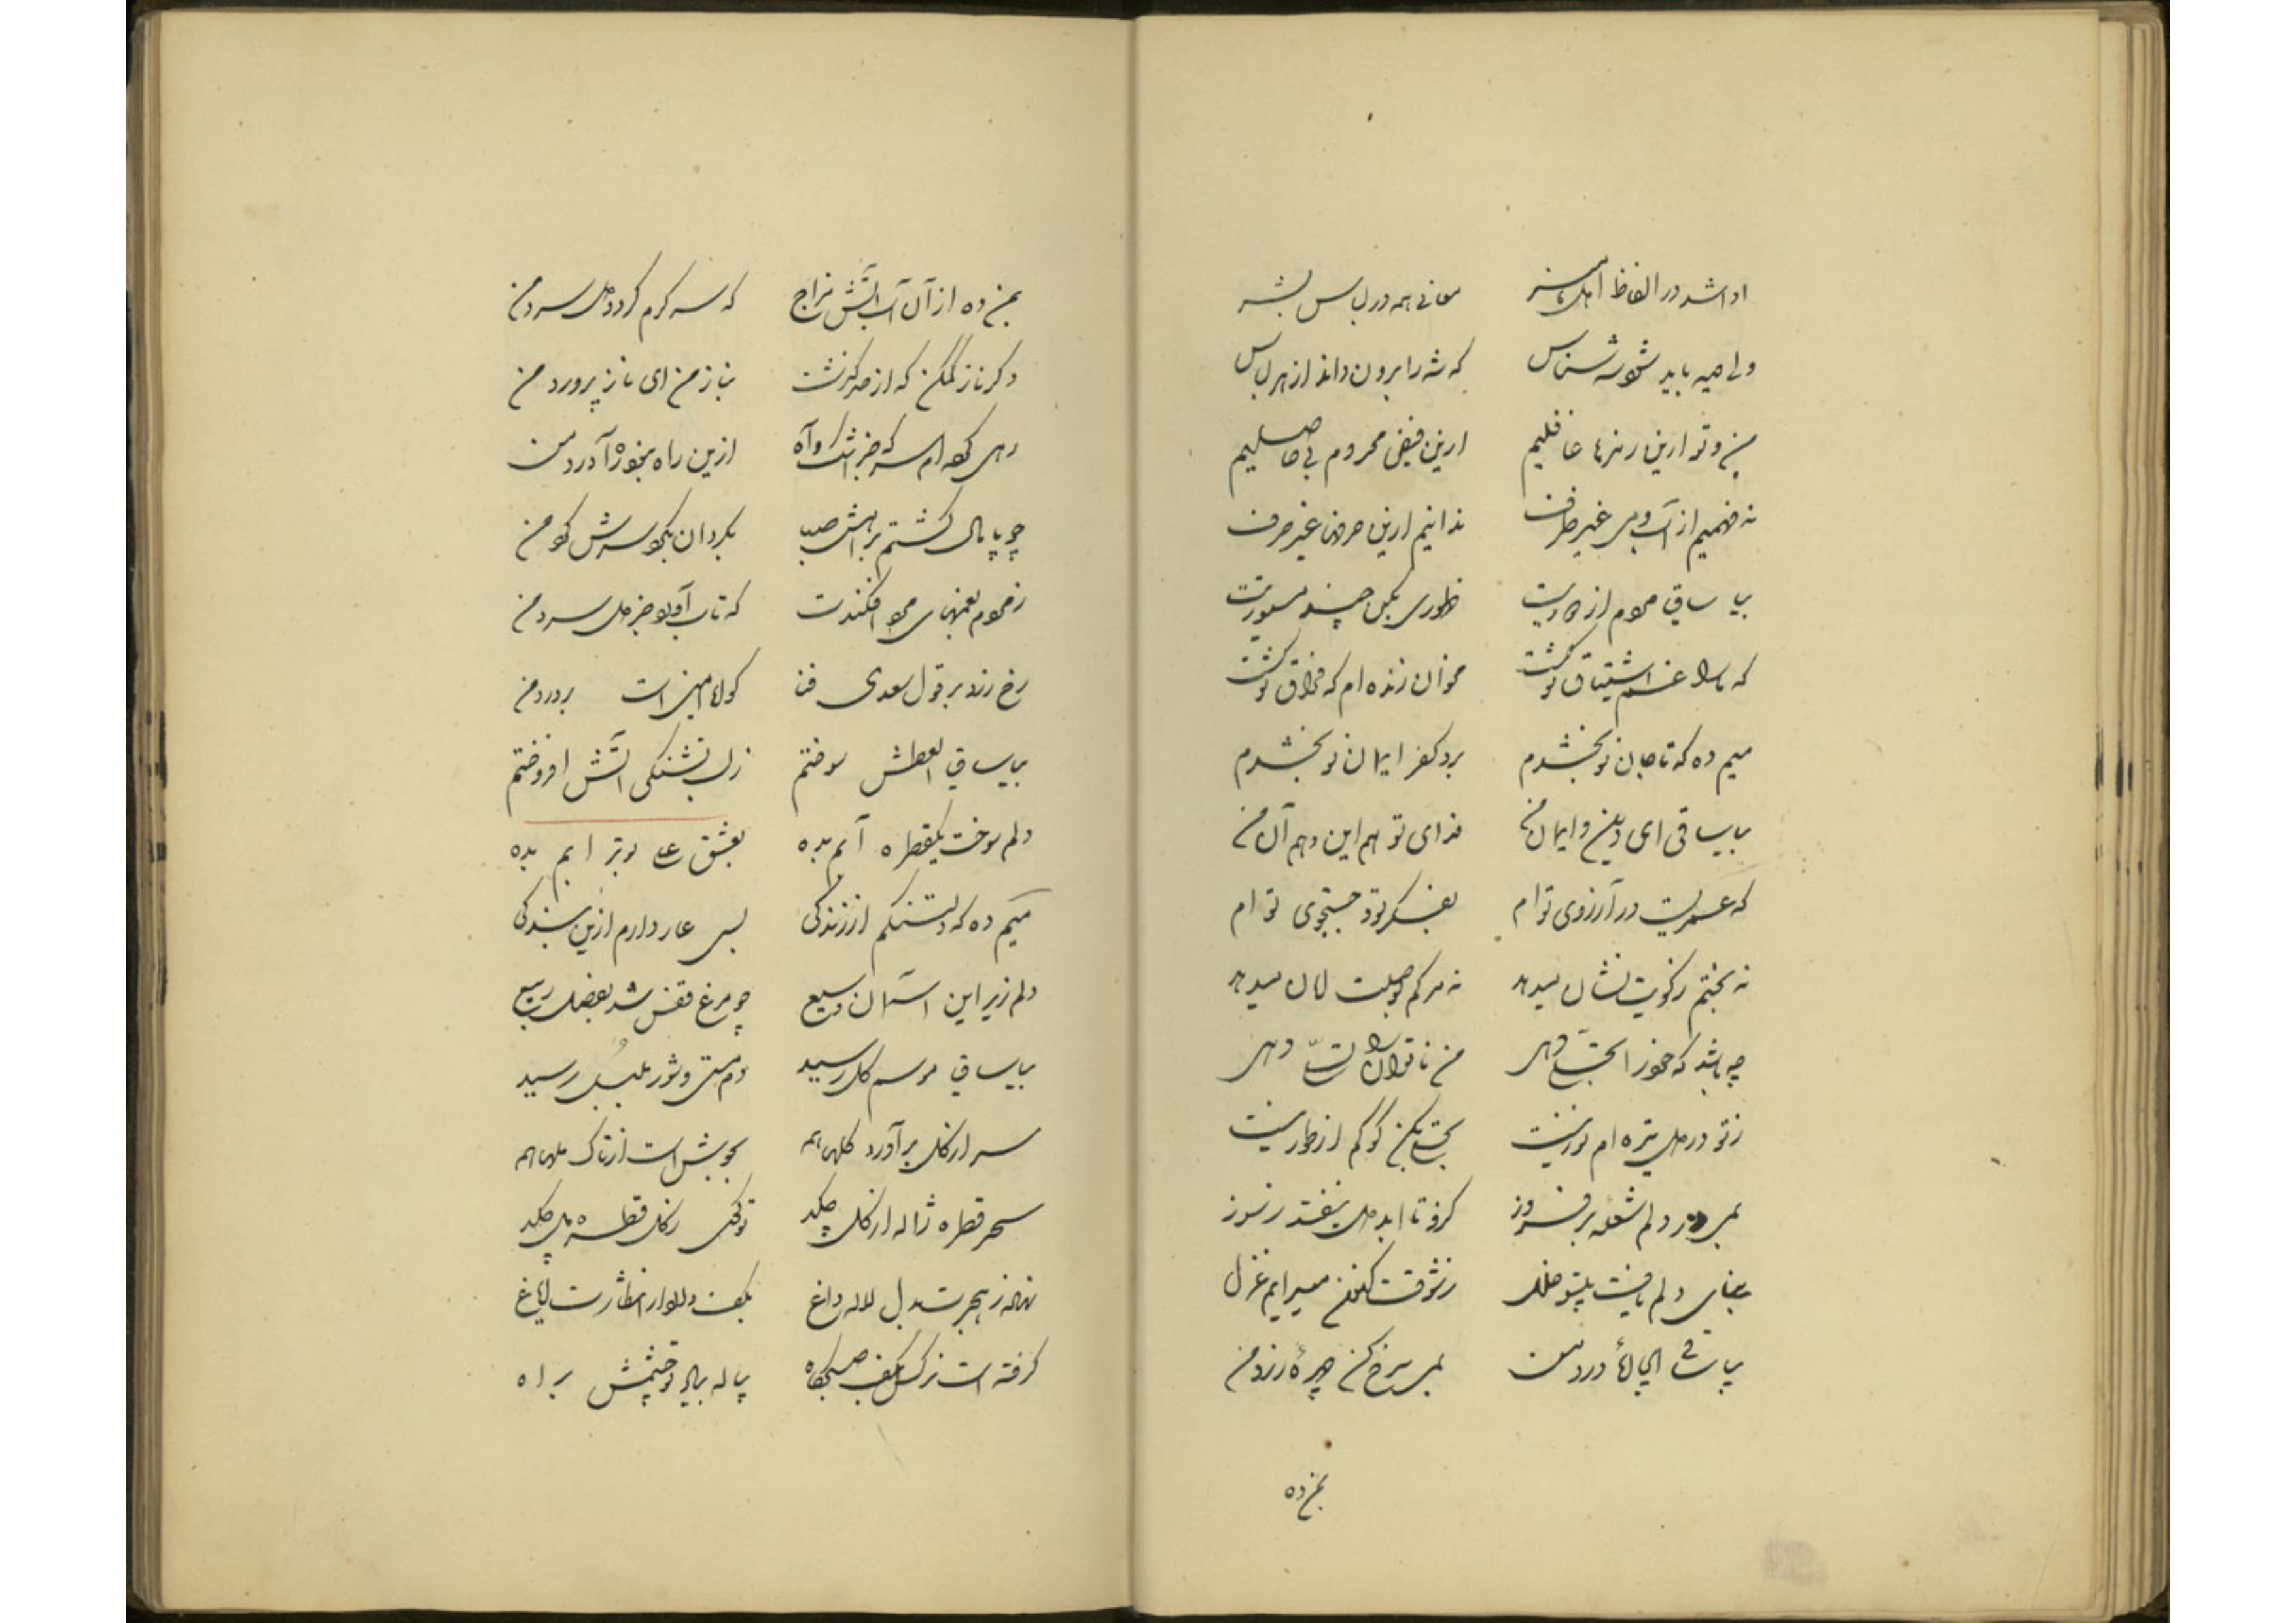 ادا شد در الفاظ اهل هنر معانی همه در لباس بشر
ولی دیده باید شه شناس که شه را برون داند از هر لباس
من و تو ازین رمزها غافلیم ازین فیض محروم بی حاصلیم
نه فهمیم از آب و می غیر ظرف ندانیم ازین حرفها غیر حرف
بیا ساقی از ظهوری بکن چند مستوریت
که غم اشتیاق تو کشت مخوان زنده ام که فراق تو کشت
میم ده که تا جان نو بخشدم برد کفر ایمان نو بخشدم
بیا ساقی ای دین و ایمان من فدای تو هم این و هم آن من
که عمریست در آرزوی توام بفکر تو و جستجوی توام
نه بختم ز کویت نشان میدهد نه مرگم ز وصلت امان میدهد
چه باشد که خود را تجلی دهی من ناتوان را تسلی دهی
ز تو در دل تیره ام نور نیست تجلی بکن گو کم از طور نیست
بمی در دلم شعله برفروز کزو تا ابد دل نیفتد ز سوز
دلم نیست ز شوقت کنون میسرایم غزل
بیا ساقی ای درد من بمی سرخ کن چهرهٔ زرد من
بمن ده
بمن ده از آن آب آتش مزاج که سر گرم گردد دل سرد من
دگر ناز کم کن که از حد گذشت بناز من ای نازپرورد من
رهی ام سر که جز اشک و آه ازین راه نبود ره آورد من
چو پامال گشتم براهش صبا بگردان بگرد سرش گرد من
که تاب آورد جز دل سرد من
رخ زرد بر قول سعدی فن گواه امین است بر درد من
بیا ساقی العطش سوختم ز لب تشنگی آتش افروختم
دلم سوخت یکقطره آبم بده بعشق علی بوترابم بده
میم ده که دلتنگم از زندگی بسی عار دارم ازین بندگی
دلم زیر این آسمان وسیع چو مرغ قفس شد بفصل ربیع
بیا ساقی موسم گل رسید دم مستی و شور بلبل رسید
سر از گل برآورد گلها همه بجوش است از تاک ملها همه
سحر قطره ژاله از گل چکد تو گویی ز گل قطره مل چکد
نهاده ز هجرت بدل لاله داغ بکف لاله در انتظارت ایاغ
گرفته است نرگس بکف صبحگاه پیاله بیاد تو چشمش براه